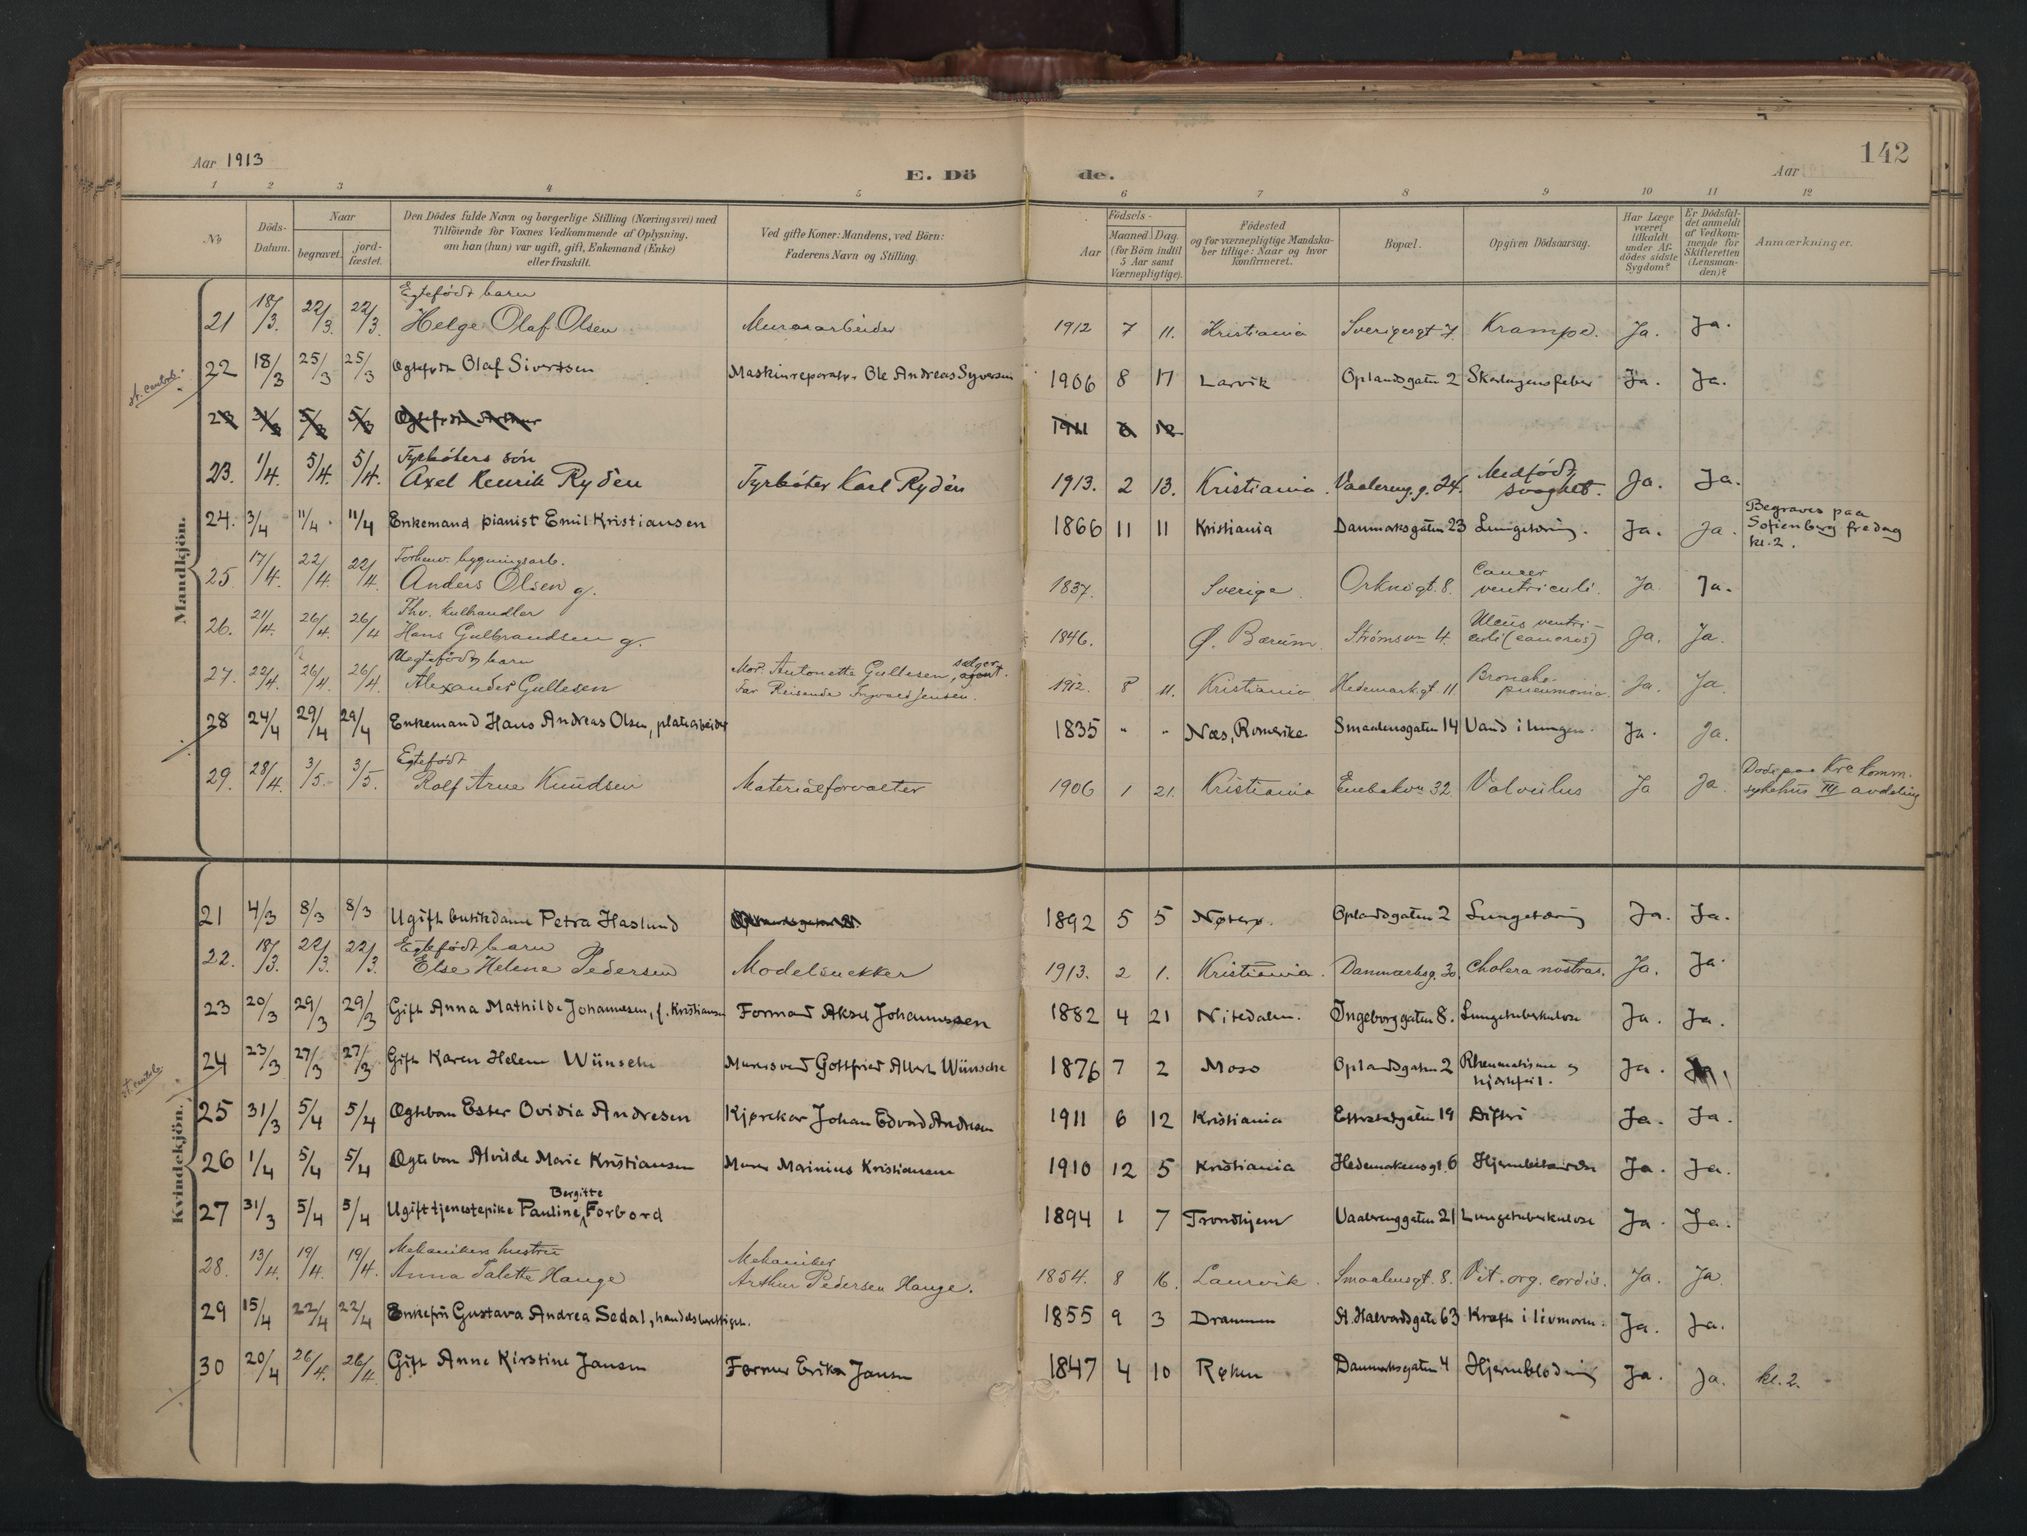 Aar 1913
E. Döde.
Aar
142
1 2 3 4 5 6 7 8 9 10 11 12
№
Döds-Datum.
Naar
begravet.
jord-fæstet.
Den Dödes fulde Navn og borgerlige Stilling (Næringsvei) med
Tilföiende for Voxnes Vedkommende af Oplysning,
om han (hun) var ugift, gift, Enkemand (Enke)
eller fraskilt.
Ved gifte Koner: Mandens, ved Börn:
Faderens Navn og Stilling.
Födsels-
Aar
Maaned Dag.
(for Börn indtil
5 Aar samt
Værnepligtige).
Födested
og for værnepligtige Mandska-
ber tillige: Naar og hvor
konfirmeret.
Bopæl.
Opgiven Dödsaarsag.
Har Læge
været
tilkaldt
under Af-
dödes sidste
Sygdom?
Er Dödsfal-
det anmeldt
af Vedkom-
mende for
Skifteretten
(Lensman-
den)?
Anmærkninger.
Mandkjön.
Egtefødt barn
21 18/3. 22/3. 22/3. Helge Olaf Olsen Murerarbeider 1912 7 11. Kristiania Sverigesgt 7. Krampe. Ja. Ja.
22 18/3 25/3 25/3 Ogtefødt Olaf Sivertsen Maskinreparatør Ole Andreas Syversen 1906 8 17 Larvik Oplandsgaten 2 Skarlagensfeber Ja. Ja.
23 31/3 5/3 5/3 1911 6 12
Fyrbøters søn
23. 1/4. 5/4. 5/4. Axel Henrik Rydén Fyrbøter Karl Rydén 1913. 2 13. Kristiania. Vaalereng. g. 24. Medfødt svaghet. Ja. Ja.
24. 3/4 11/4. 11/4 Enkemand pianist Emil Kristiansen 1866 11 11 Kristiania Danmarksgaten 23 Lungetæring. Ja. Ja. Begraves paa
Sofienberg fredag
kl. 2.
Forhenv. bygningsarb.
25. 17/4. 22/4. 22/4. Anders Olsen g. 1837. Sverige. Orknøgt. 8. Cancer ventriculi. Ja Ja.
Fhv. kulhandler
26. 21/4. 26/4. 26/4 Hans Gulbrandsen g. 1846. Ø. Bærum. Strømsvn 4. Ulcus ventri-
culi (cancros) Ja. Ja.
Uegtefødt barn
27. 22/4. 26/4. 26/4. Alexander Gullesen Mor. Antonette Gullesen, agent.
Far Reisende Ingvald Jensen. 1912. 8 11. Kristiania Hedemarksgt. 11 Broncho-
pneumonia. Ja. Ja.
28 24/4 29/4 29/4 Enkemand Hans Andreas Olsen, platearbeider 1835 " " Næs, Romerike Smaalensgaten 14 Vand i lungen. Ja. Ja.
Egtefødt
29. 28/4. 3/5. 3/5. Rolf Arne Knudsen Materialforvalter 1906 1 21. Kristiania Enebakvn 32. Volvulus Ja Ja. Døde paa Kra komm.
sykehus III avdeling
Kvindekjön.
21 4/3 8/3 8/3 Ugift butikdame Petra Haslund 1892 5 5 Nøterø. Oplandsgaten 2 Lungetæring Ja. Ja.
Egtefødt barn
22. 18/3. 22/3. 22/3. Else Helene Pedersen Modelsnekker 1913. 2 1. Kristiania. Danmarksg. 30. Cholera nostras. Ja. Ja.
23 20/3 29/3 29/3 Gift Anna Mathilde Johannesen, f. Kristiansen Formand Aksel Johannessen 1882 4 21 Nitedalen. Ingeborggaten 8. Lungetuberkulose Ja. Ja.
24 23/3 27/3 27/3 Gift Karen Helene Wünsche Murersvend Gottfried Albert Wünsche 1876 7 2 Moss Oplandsgaten 2 Rheumatisme og
hjertefeil. Ja. Ja.
25 31/3 5/4 5/4 Ogtebarn Ester Ovidia Andresen Kjørekar Johan Edvard Andresen 1911 6 12 Kristiania Etterstadgaten 19 Difteri Ja. Ja.
26 1/4 5/4 5/4 Ogtebarn Alvilde Marie Kristiansen Murer Marinius Kristiansen 1910 12 5 Kristiania Hedemarkensgt. 6 Ja. Ja.
27 31/3 5/4 5/4 Ugift tjenestepike Pauline Bergitte Forbord 1894 1 7 Trondhjem Vaalerenggaten 21 Lungetuberkulose Ja. Ja.
Mekanikers hustru
28. 13/4. 19/4. 19/4. Anna Talette Hauge Mekaniker
Arthur Pedersen Hauge. 1854. 8 16. Laurvik. Smaalensgt. 8. Vit. org. cordis. Ja. Ja.
29 15/4 22/4 22/4 Enkefru Gustava Andrea Sedal, handelsberettiget. 1855 9 3 Drammen St. Halvardsgate 63 Kræft i livmoren. Ja. Ja.
30 20/4 26/4. 26/4. Gift Anne Kirstine Jansen Former Erik Jansen 1847 4 10 Røken Danmarksgaten 4 Hjerneblødning Ja. Ja. kl. 2.